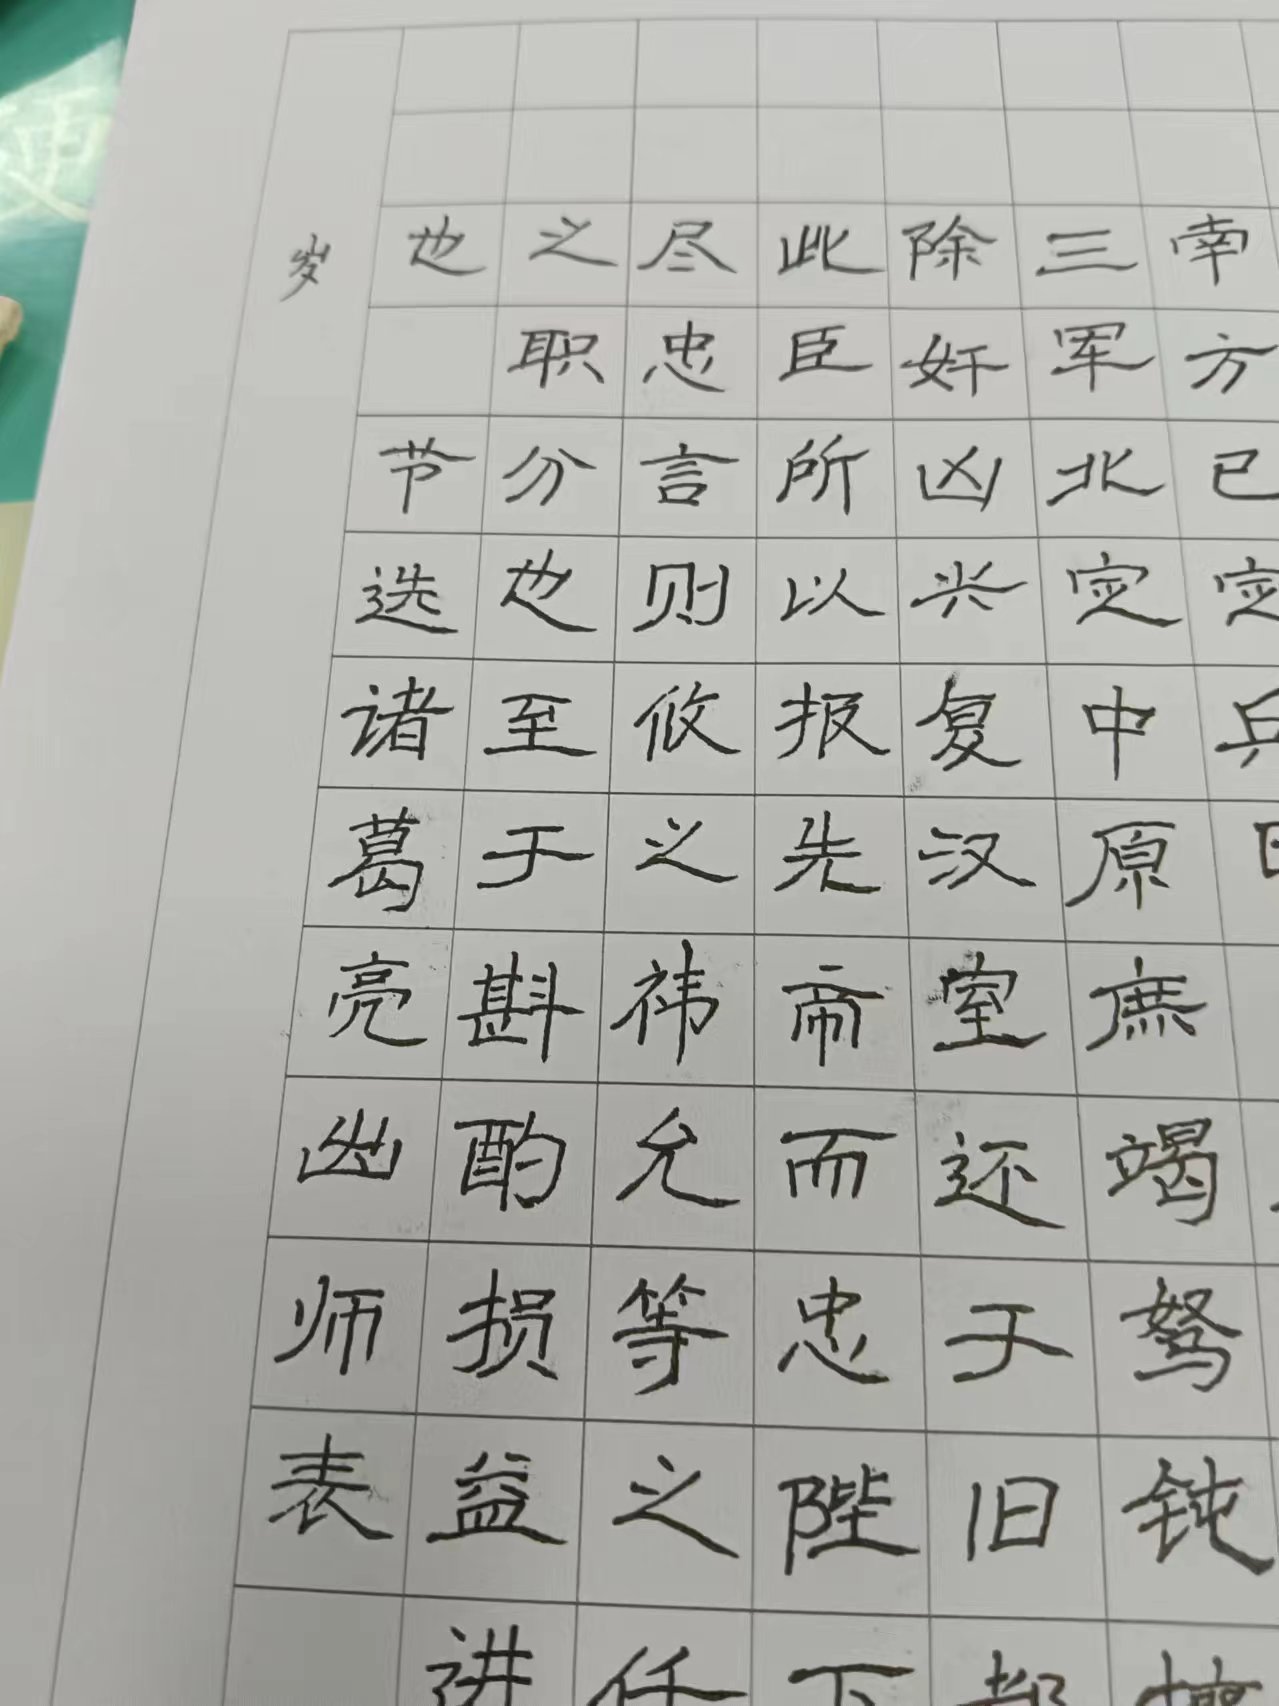 南方已定兵
三军北定中原庶竭驽钝
除奸凶兴复汉室还于旧都
此臣所以报先帝而忠陛下
尽忠言则攸之祎允等之任
之职分也至于斟酌损益进
也 节选诸葛亮出师表
岁